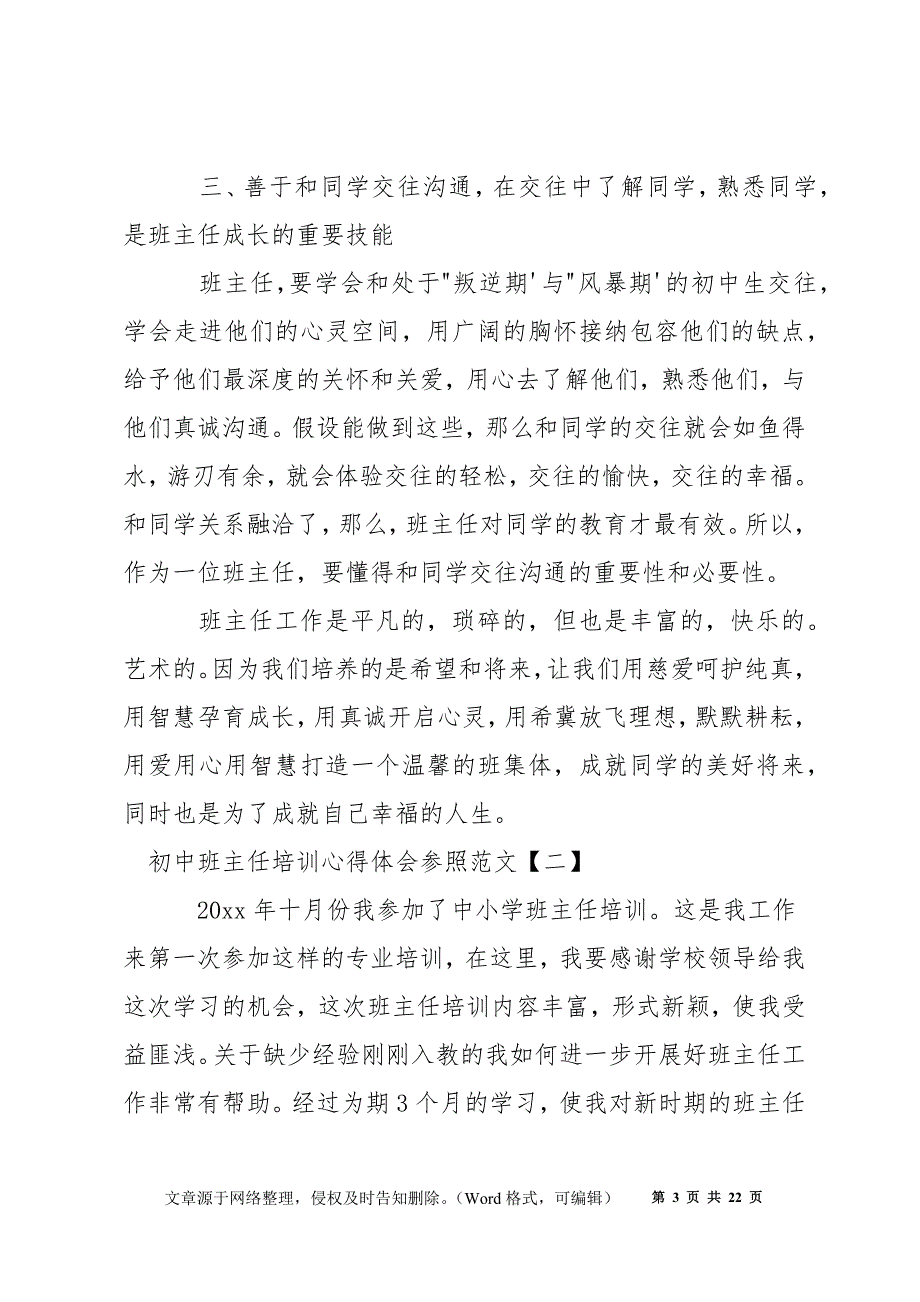 三、善于和同学交往沟通，在交往中了解同学，熟悉同学，
是班主任成长的重要技能
班主任，要学会和处于"叛逆期'与"风暴期'的初中生交往，
学会走进他们的心灵空间，用广阔的胸怀接纳包容他们的缺点，
给予他们最深度的关怀和关爱，用心去了解他们，熟悉他们，与
他们真诚沟通。假设能做到这些，那么和同学的交往就会如鱼得
水，游刃有余，就会体验交往的轻松，交往的愉快，交往的幸福。
和同学关系融洽了，那么，班主任对同学的教育才最有效。所以，
作为一位班主任，要懂得和同学交往沟通的重要性和必要性。
班主任工作是平凡的，琐碎的，但也是丰富的，快乐的。
艺术的。因为我们培养的是希望和将来，让我们用慈爱呵护纯真，
用智慧孕育成长，用真诚开启心灵，用希冀放飞理想，默默耕耘，
用爱用心用智慧打造一个温馨的班集体，成就同学的美好将来，
同时也是为了成就自己幸福的人生。
初中班主任培训心得体会参照范文【二】
20xx 年十月份我参加了中小学班主任培训。这是我工作
来第一次参加这样的专业培训，在这里，我要感谢学校领导给我
这次学习的机会，这次班主任培训内容丰富，形式新颖，使我受
益匪浅。关于缺少经验刚刚入教的我如何进一步开展好班主任工
作非常有帮助。经过为期 3 个月的学习，使我对新时期的班主任
文章源于网络整理，侵权及时告知删除。（Word 格式，可编辑） 第 3 页 共 22 页